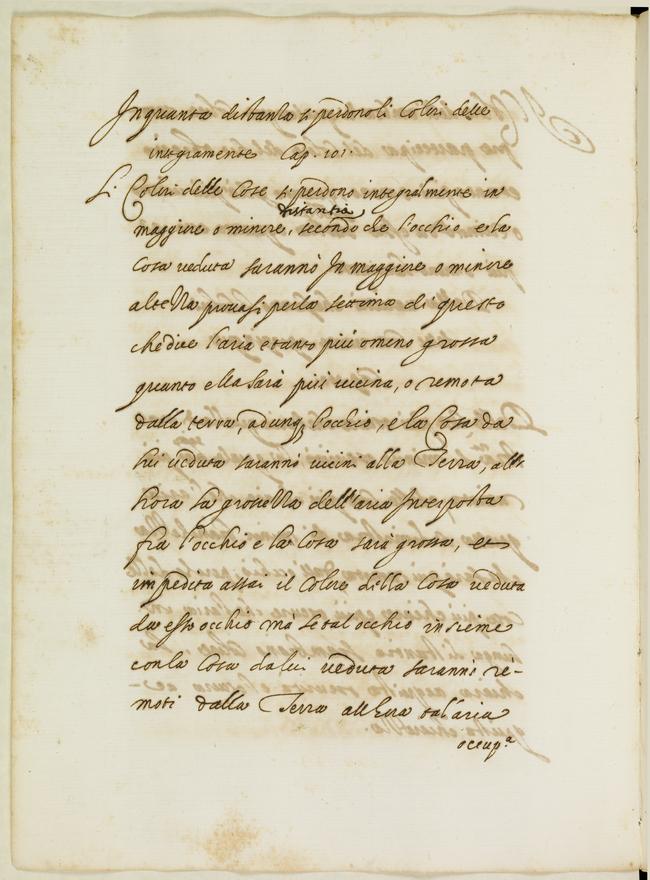 In quanta distanza si perdono li Colori delle
integramente Cap. 101.
Li Colori delle Cose si perdono integralmente in
distantia
maggiore o minore, secondo che l'occhio e la
Cosa veduta saranno In maggiore o minore
altezza provasi per la settima di questo
che dice l'aria e tanto più o meno grossa
quanto ella sarà più vicina, o remota
dalla terra, adunq, l'occhio, e la Cosa da
lui veduta saranno vicini alla Terra, all'
hora la grossezza dell'aria Interposta
fra l'occhio e la Cosa sarà grossa, et
impedita assai il Colore della Cosa veduta
da esso occhio mà se tal occhio insieme
con la Cosa da lui veduta saranno re-
moti dalla Terra all'hora tal'aria
occup.a